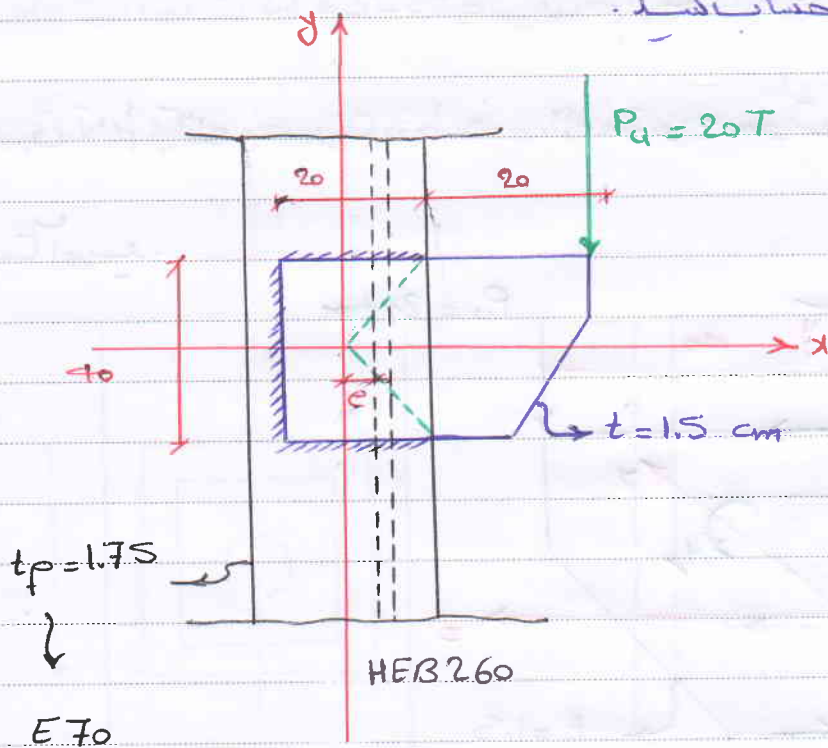 y
P_u = 20T
20
20
40
x
e
t = 1.5 cm
t_f = 1.75
HEB260
E70